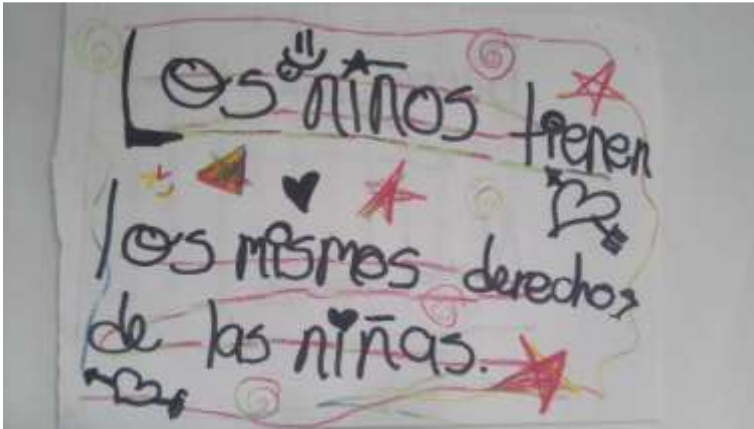 Los niños tienen
los mismos derechos
de las niñas.